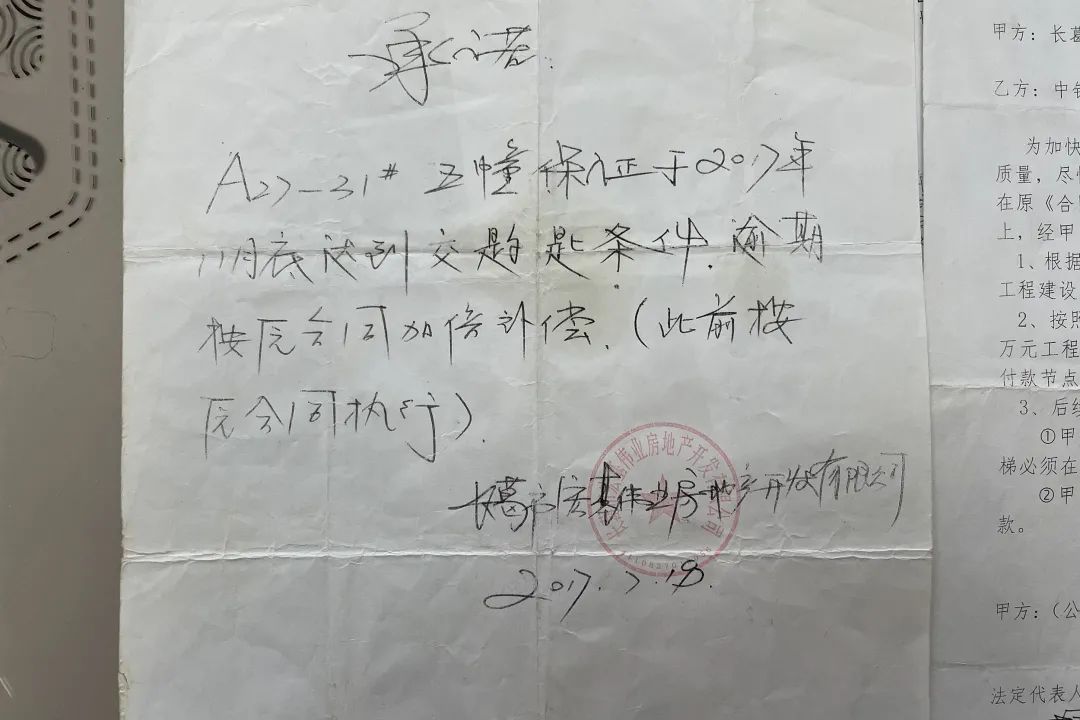 承诺:
A27-31# 五幢保证于2017年
11月底达到交钥匙条件.逾期
按原合同加倍补偿.(此前按
原合同执行).
长葛市宏基伟业房地产开发有限公司
2017.7.18.
基伟业房地产开发有限公司
甲方:长葛
乙方:中
为加快
质量,尽
在原《合
上,经甲
1、根据
工程建设
2、按照
万元工程
付款节点
3、后续
①甲
梯必须在
②甲
款。
甲方:(公
法定代表人